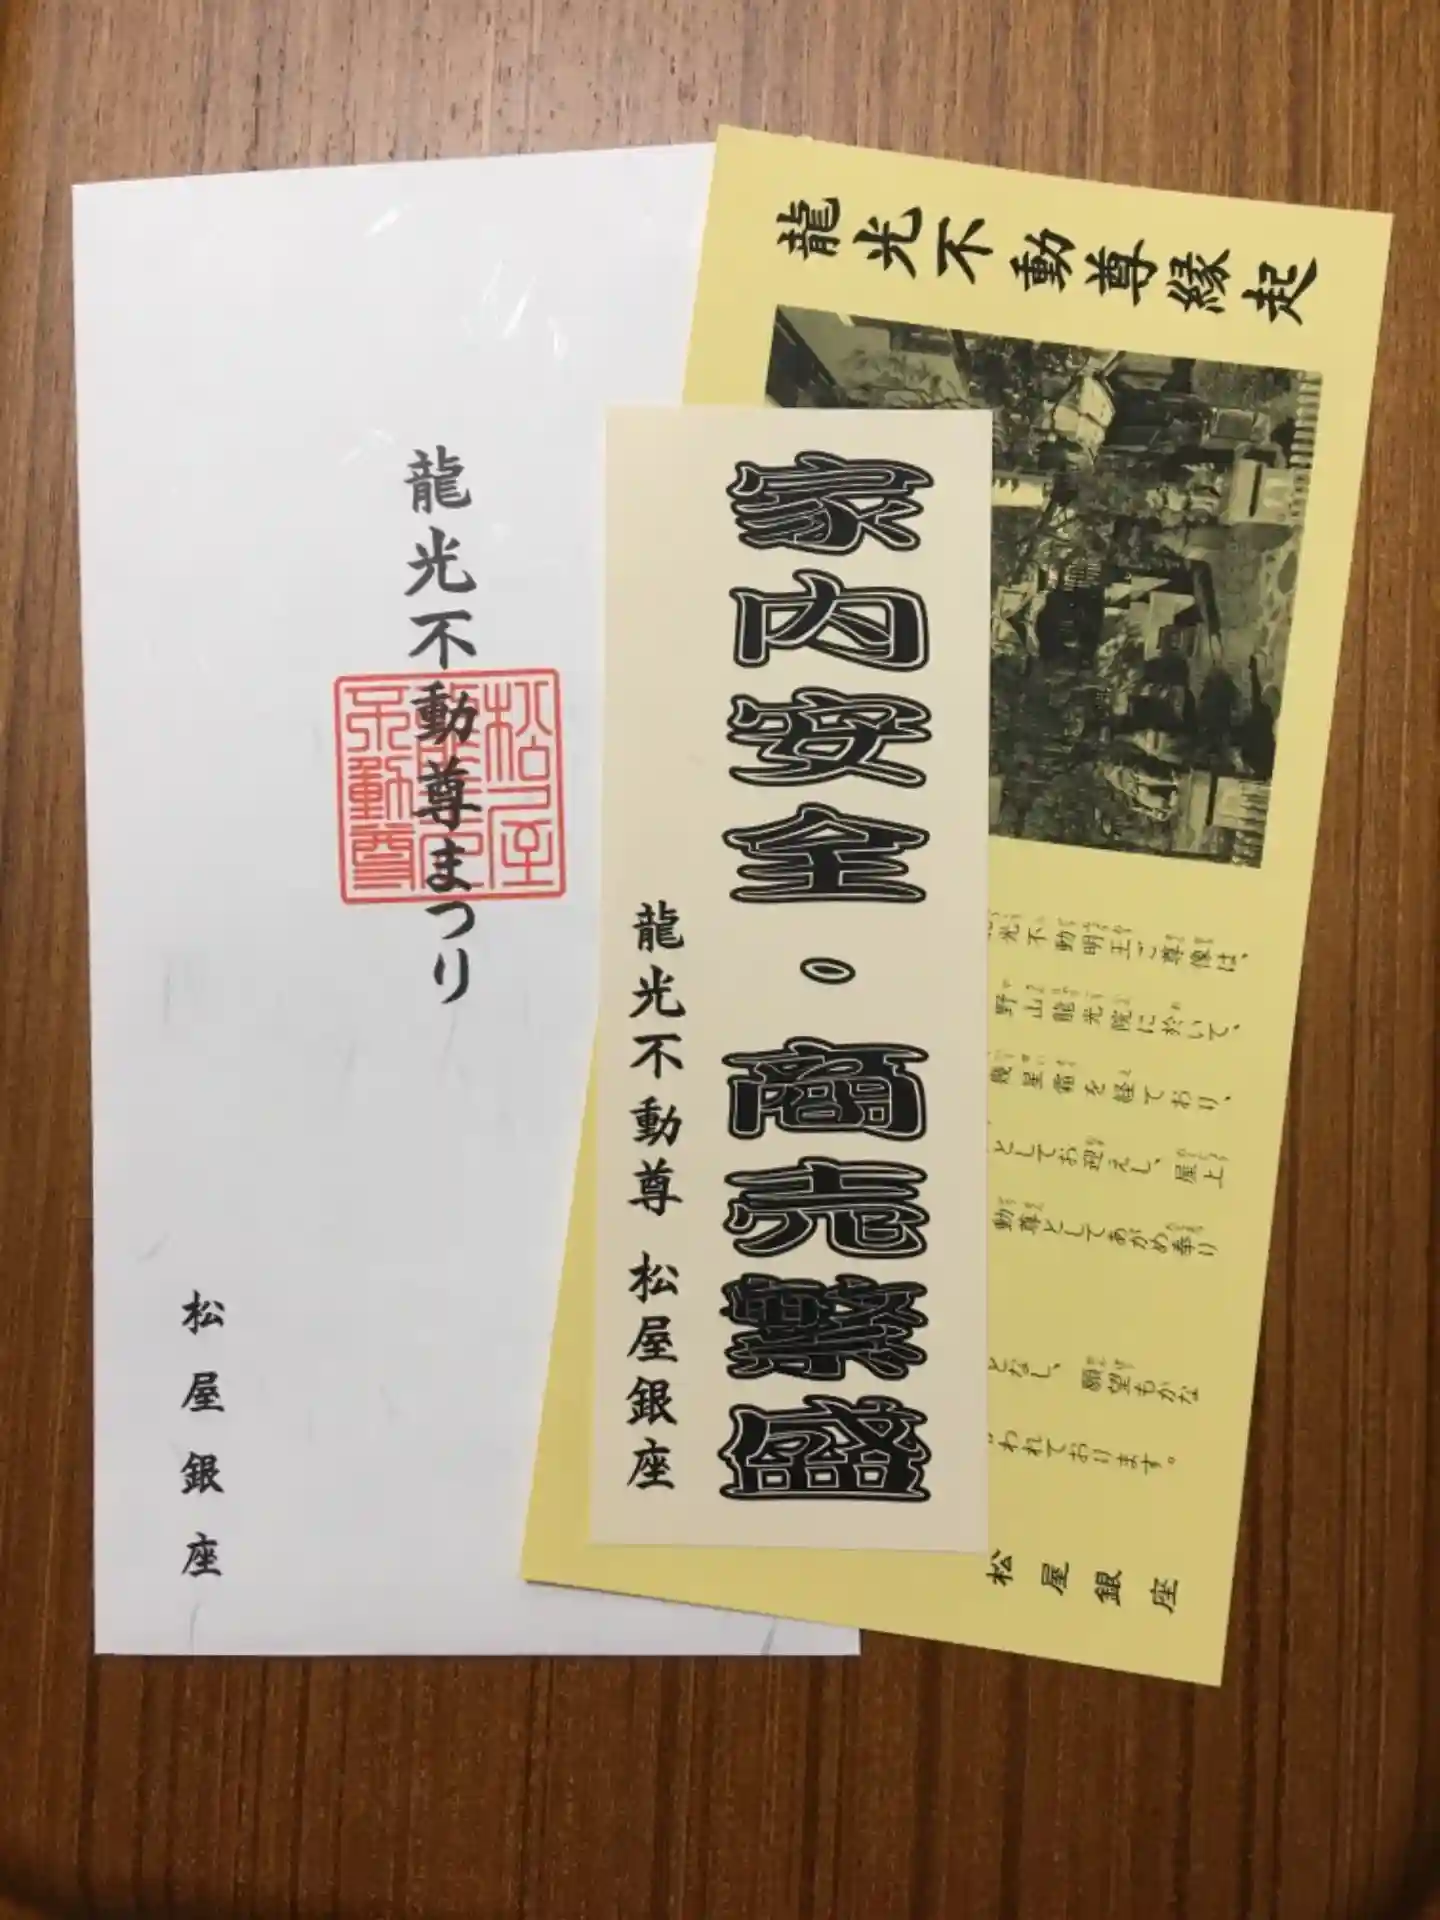 龍光不動尊まつり
松屋
龍光
不動尊
松屋銀座
家内安全・商売繁盛
龍光不動尊 松屋銀座
龍光不動尊縁起
光不動明王ご尊像は、
野山龍光院に於いて、
幾星霜を経ており、
としてお迎えし、屋上
動尊としてあがめ奉り
となし、願望もかな
われております。
松屋銀座